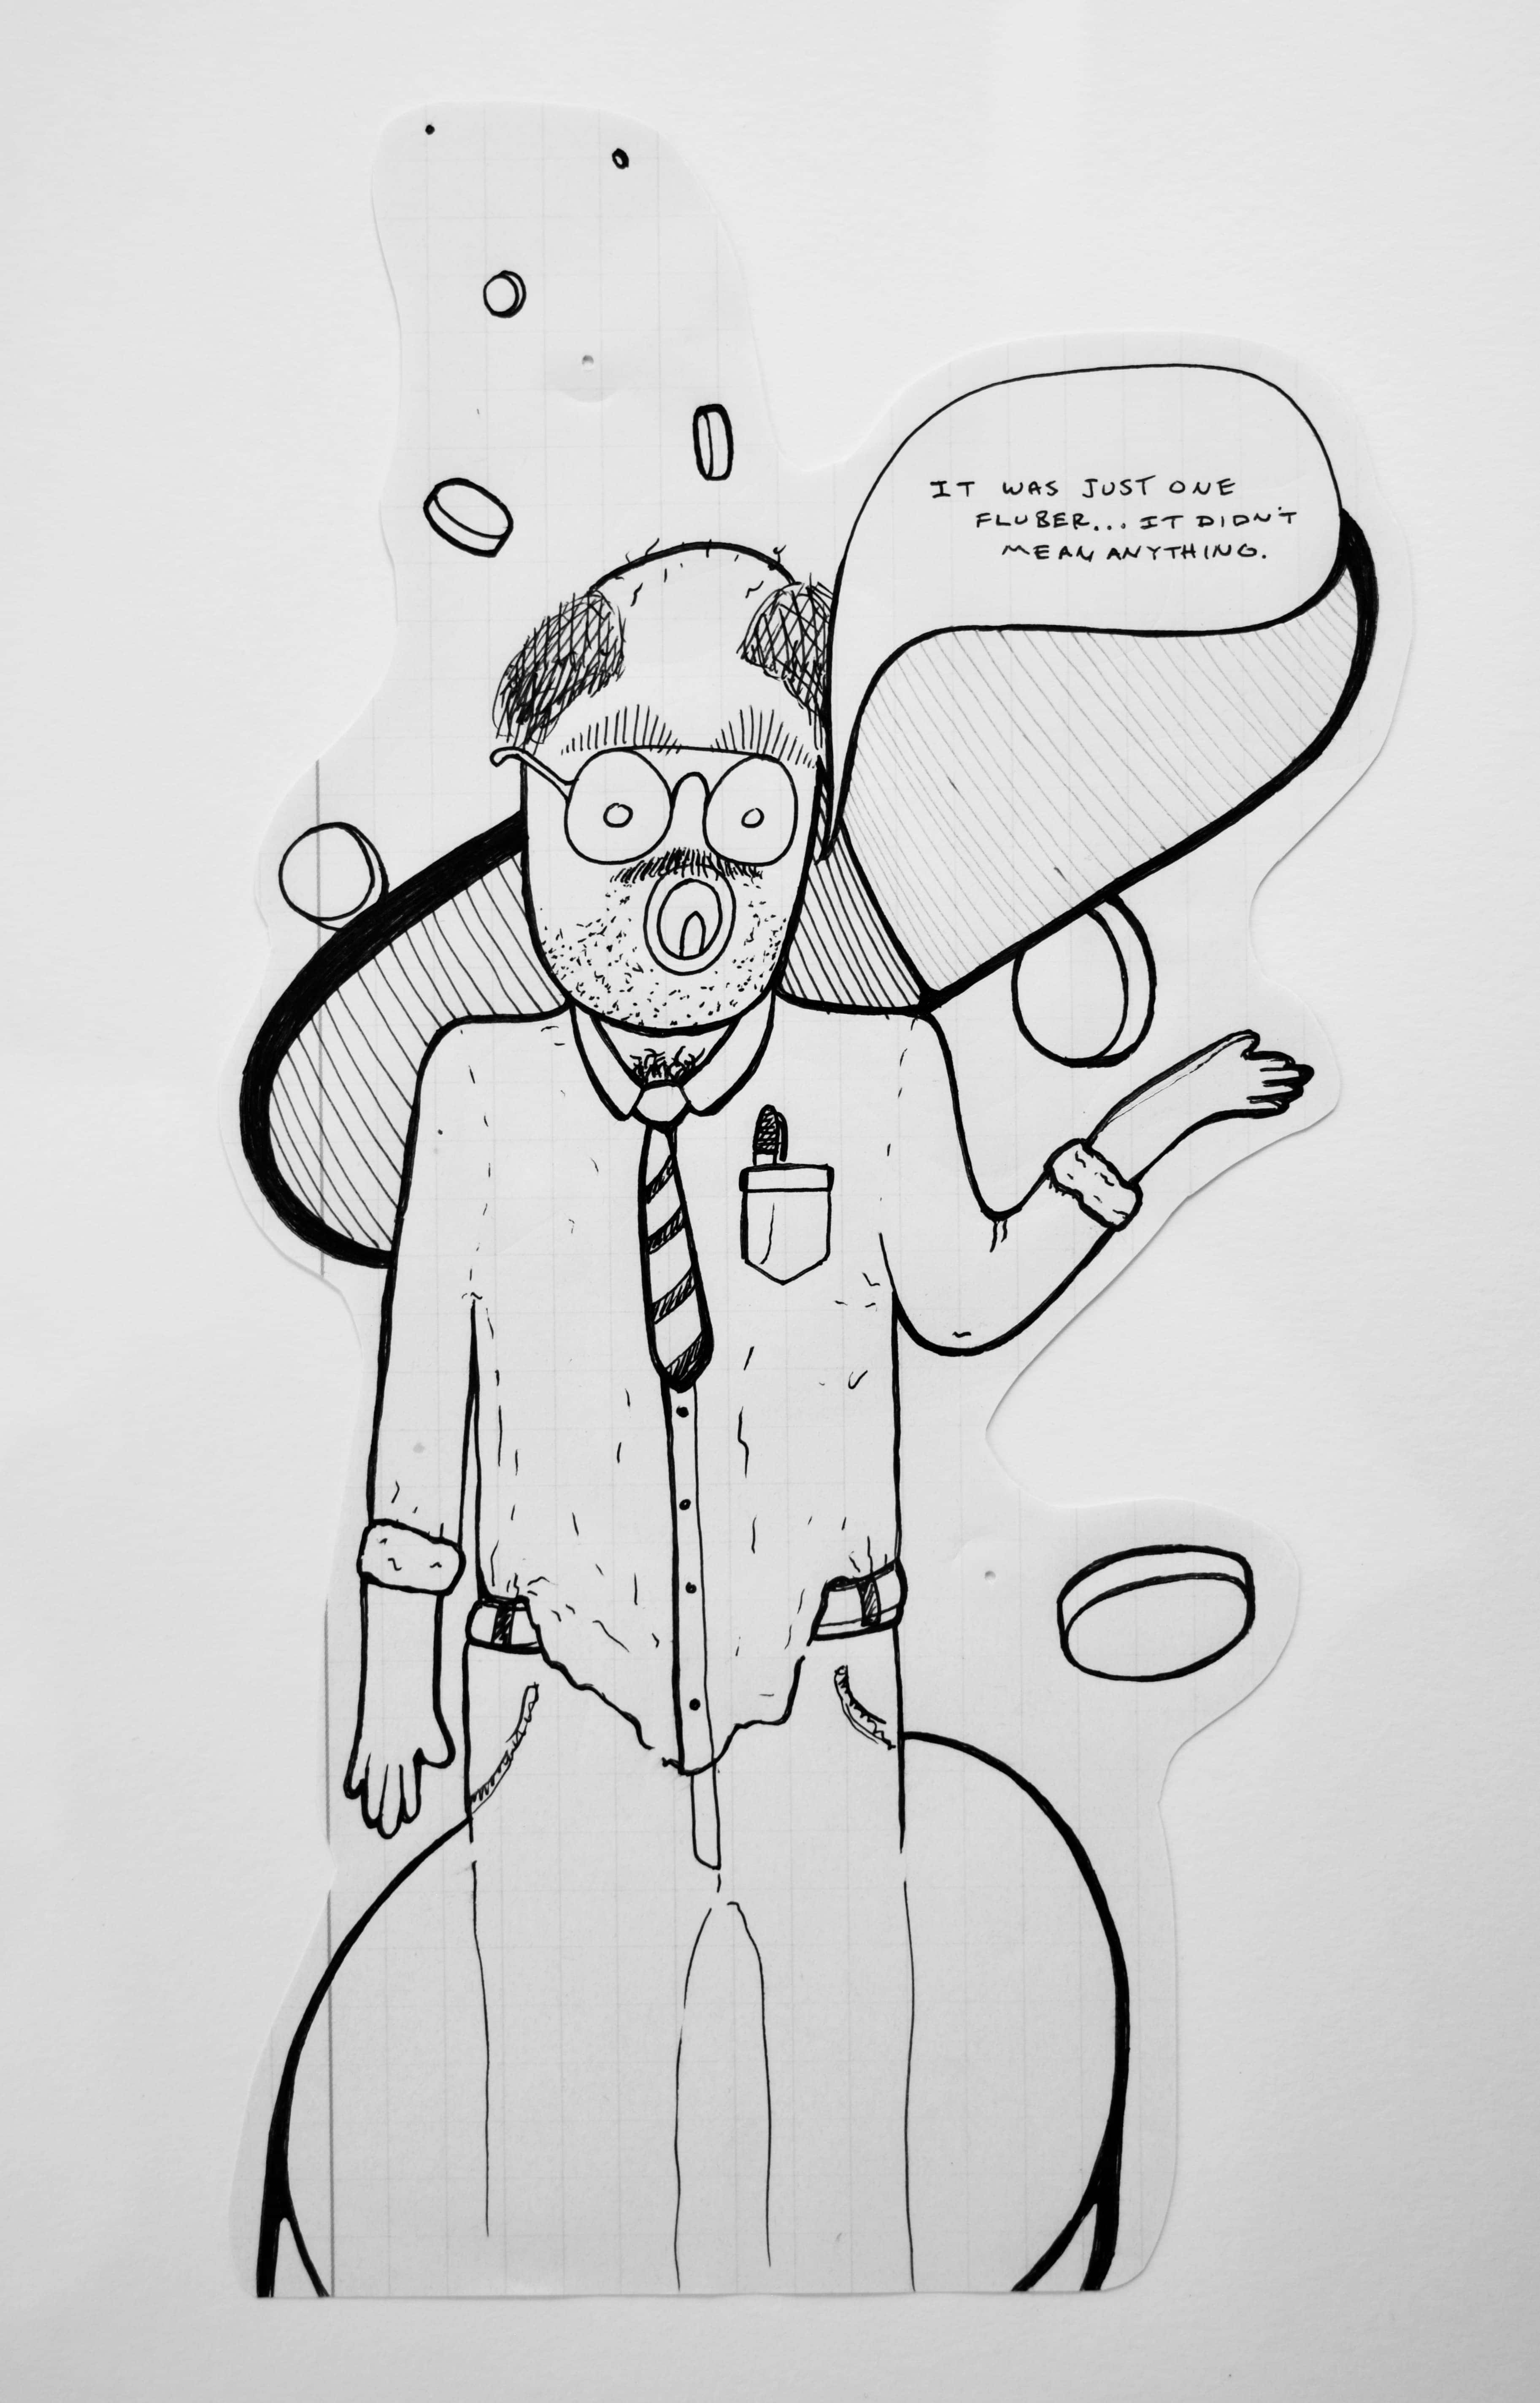 IT WAS JUST ONE
FLUBER... IT DIDN'T
MEAN ANYTHING.